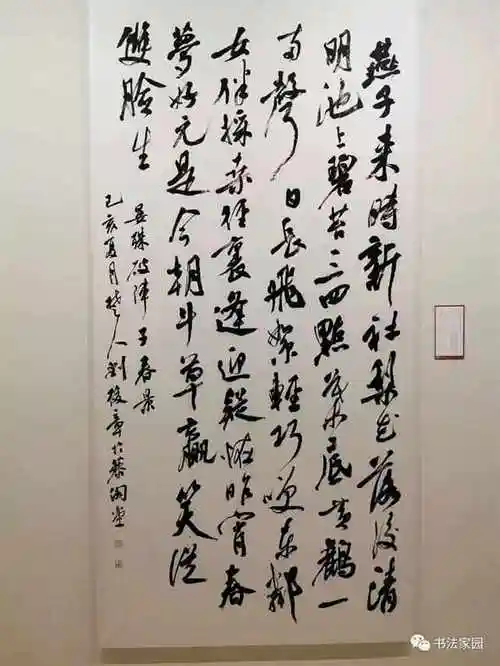 燕子来時新社梨花落後清
明池上碧苔三四點葉底黄鸝一
两聲日長飛絮輕巧咲東鄰
女伴採桑徑裏逢迎疑怪昨宵春
夢好元是今朝斗草贏笑從
雙臉生
晏殊破陣子春景
己亥夏月楚人劉章於慕陶堂
书法家园